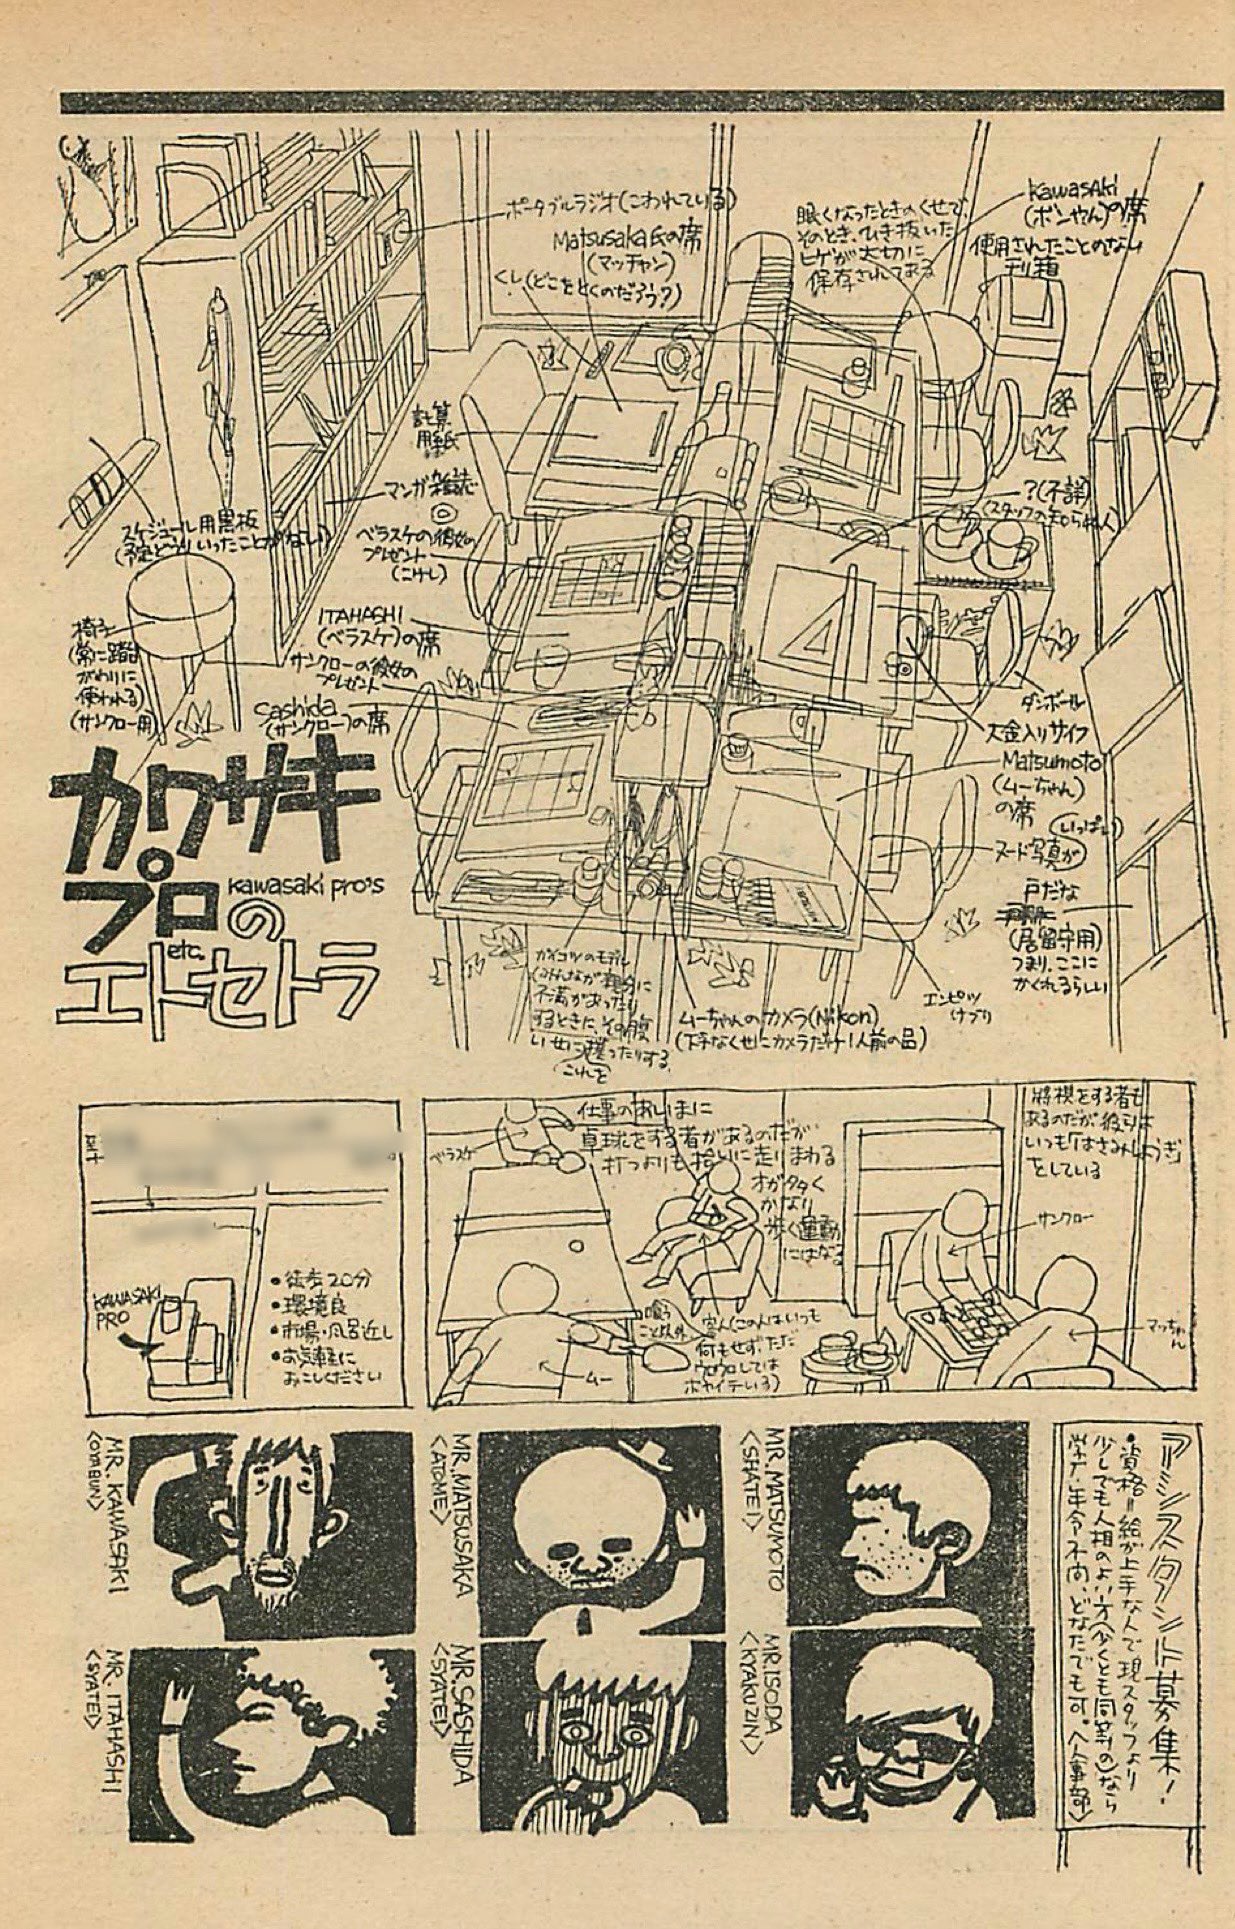 ポータブルラジオ(こわれている)
Matsusaka氏の席
(マッチャン)
くし(どこをとくのだろう?)
眠くなったときのくせで、
そのとき、ひき抜いた
ヒゲが大切に
保存されてある
KawasAki
(ボンやん)の席
使用されたことのない
計算
用紙
マンガ雑誌
ベラスケの彼女の
プレゼント
(こけし)
?(不詳)
(スタッフの知られん)
スケジュール用黒板
(予定どうりいったことがない)
ITAHASHI
(ベラスケ)の席
椅子
(常に踏台
がわりに
使われる)
(サンクロー用)
サンクローの彼女の
プレゼント
(サンクロー)の席
ダンボール
大金入りサイフ
Matsumoto
(ムーちゃん)
の席
ヌード写真が
いっぱい
戸だな
(居留守用)
つまり、ここに
かくれるらしい
カワサキ
プロの
kawasaki pro's
etc.
エトセトラ
ガイコツのモデル
(みんなが親分に
不満があったり
するときに、その腹
いせに
これを
ったりする
ムーちゃんのカメラ(Nikon)
(下手なくせにカメラだけ1人前の品)
エンピツ
けづり
KAWASAKI
PRO
●徒歩20分
●環境良
●市場・風呂近し
●お気軽に
おこしください
仕事のあいまに
卓球をする者があるのだが
打つよりも拾いに走りまわる
方がタタく
かなり
歩く運動
にはなる
ベラスケ
ムー
喰う
こと以外
客人(この人はいつも
何もせず、ただ
ウロウロしては
ボヤイテいる)
将棋をする者も
あるのだが、彼らは
いつも「はさみしょうぎ」
をしている
サンクロー
マッちゃん
MR. KAWASAKI
<OYABUN>
MR. MATSUSAKA
<ATOME>
MR. MATSUMOTO
<SHATEI>
MR. ITAHASHI
<SYATEI>
MR. SASHIDA
<SYATEI>
MR. ISODA
<KYAKUZIN>
アシスタント募集!
●資格=絵が上手な人で現スタッフより
少しでも人相のよい方(少くとも同等の)なら
学力・年令不問、どなたでも可。<人事部>